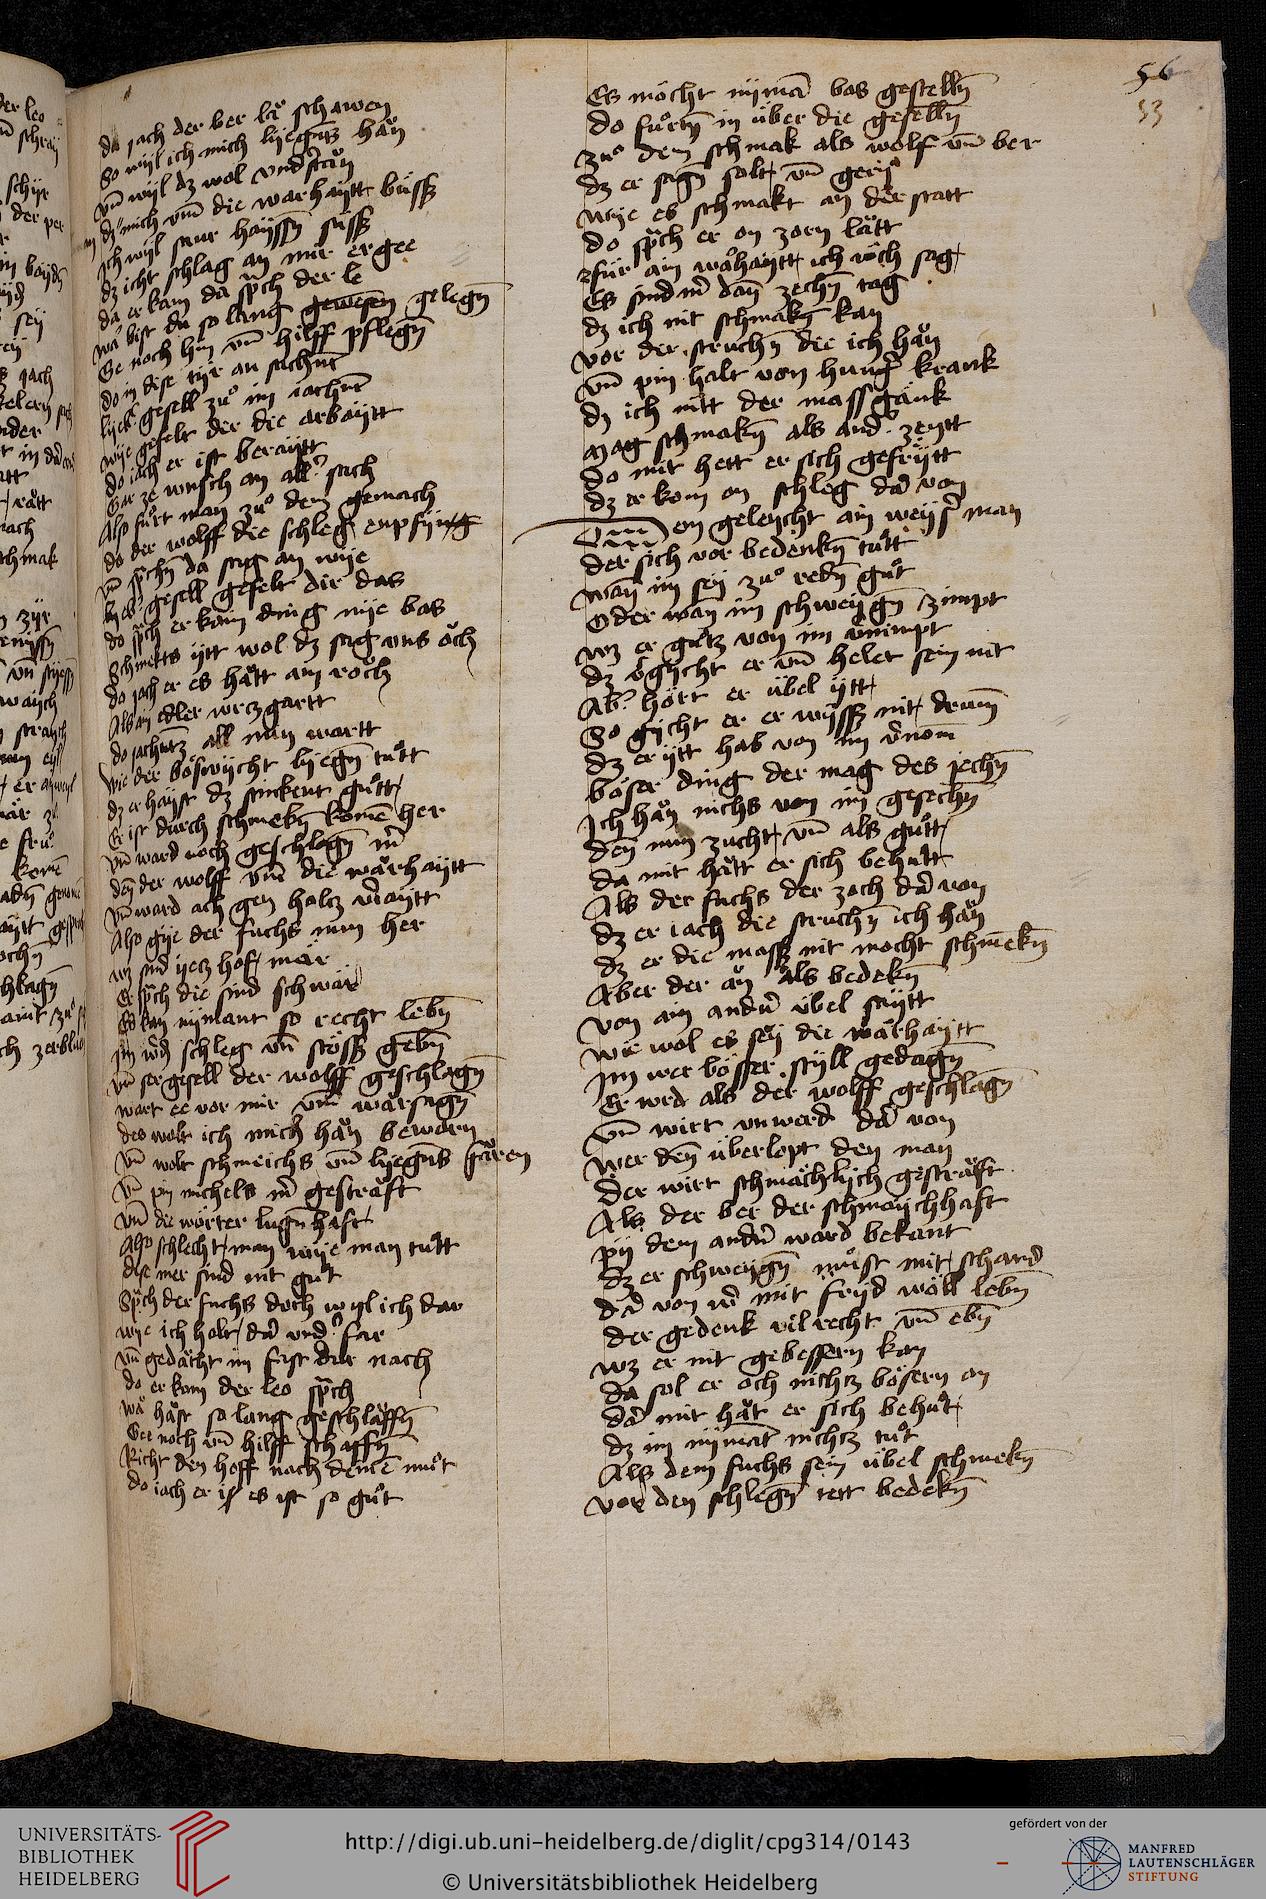 da sach der ber lä schawen
So wyl ich mich lyegntz hän
vn̄ wyl dz wol vnderstän
dz mich vm̄ die warhaytt büssz
Ich wyl saur hayssn̄ süssz
dz icht schlag an mir ergee
da er kam da sp̄ch der le
wa bist du so lang gewesen gelegn̄
Ge noch hin vn̄ hilff pflegn̄
do in dise tyr an sachnt
lyeber gesell zuͦ im iachnt
wye gefelt der die arbaytt
do iach er ist beraytt
Gar ze wnsch an aller sach
Also fuͤrt man zuͦ dem gemach
do der wolff die schleg enpfyng
vn̄ sp̄chn̄ da sag an wye
lyeber gesell gefelt dir das
do sp̄ch er kain ding nye bas
Schmekts ytt wol dz sag vns öch
do iach er es hätt ain röch
Als ain edler wrczgartt
do sachntz all nun wartt
Wie der böswycht lyegn̄ tuͤtt
dz er hayst dz stinkent guͤtt
Er ist durch schmekn̄ komē her
vn̄ ward noch geschlagn̄ mer
den der wolff vm̄ die warhaytt
vn̄ ward ach gen holcz veriaytt
Also gye der fuchs nun her
wz sind yetz hof mär
Er sp̄ch die sind schwär
Es kan nymant so recht lebn̄
Im werd schleg vn̄ stössz gebn̄
vn̄ ser gesell der wolff geschlagn̄
wart ee vor mir vm̄ warsagn̄
des wolt ich mich hän bewarn
vn̄ wolt schmeichs vm̄ lyegens faren
vn̄ pin nichels mer gesträft
vn̄ die wörter lugn̄haft
Also schlecht man wye man tuͤtt
dise mer sind nit guͤt
Sp̄ch der fuchs doch wyl ich dar
wye ich halt da vnder far
vn̄ gedächt im fast dar nach
do er kam der leo sp̄ch
wä häst so lang geschläffn̄
Gee noch vn̄ hilff schaffn̄
Richt den hoff nach deinē muͤt
do iach er is es ist so guͤt
56
53
Es möcht nymā bas gestelln̄
do fuͤrtn̄ in über die geselln̄
zuͦ dem schmak als wolf vn̄ ber
dz er sagn̄ solt vn̄ gerÿ
wye es schmakt an der statt
do sp̄ch er on zorn lätt
für ain wäͤrhaytt ich üch sag
Es sind mer dan zechn̄ tag
dz ich nit schmakn̄ kan
vor der struchn̄ die ich hän
vn̄ pin halt von hunger krank
dz ich nitt der mass gänk
mag schmakn̄ als ander zeytt
do mit hett er sich gefrÿtt
dz er kom on schleg da von
Dem geleycht ain weyser man
der sich vor bedenkn̄ tuͤtt
wan im sey zuͦ redn̄ guͤt
Oder wan im schweygn̄ zimpt
wz er guͤtz von im vernimpt
dz vergycht er vn̄ helet sein nit
Aber hört er übel ytt
So gicht er er wyssz nit drum̄
dz er ytt hab von im vernom̄
böser ding der mag des jechn̄
Ich hän nichs von im gesechn̄
den nun zucht vn̄ als guͤtt
da mit hätt er sich behuͤtt
Als der fuchs der zoch da von
dz er iach die struchn̄ ich hän
dz er die massz nit mocht schmekn̄
Aber der än als bedekn̄
von ain andern übel saytt
wie wol es sey die warhaytt
Im wer bösser styll gedagn̄
Er wrd als der wolff geschlagn̄
vn̄ wirt vnwerd da von
wer den überlopt den man
der wirt schmächlych gesträft
Als der ber der schmaychhaft
py dem andern ward bekant
dz er schweygn̄ muͤst mit schand
da von wer mit fryd wöll lebn̄
der gedenk vil recht vn̄ ebn̄
wz er nit gebessern kan
da sol er och nichtz bösern an
da mit hät er sich behuͤt
dz im nymāt nichtz tuͤt
Als dem fuchs sein übel schmekn̄
vor den schlegn̄ tett bedekn̄
UNIVERSITÄTS-
BIBLIOTHEK
HEIDELBERG
http://digi.ub.uni-heidelberg.de/diglit/cpg314/0143
© Universitätsbibliothek Heidelberg
gefördert von der
MANFRED
LAUTENSCHLÄGER
STIFTUNG